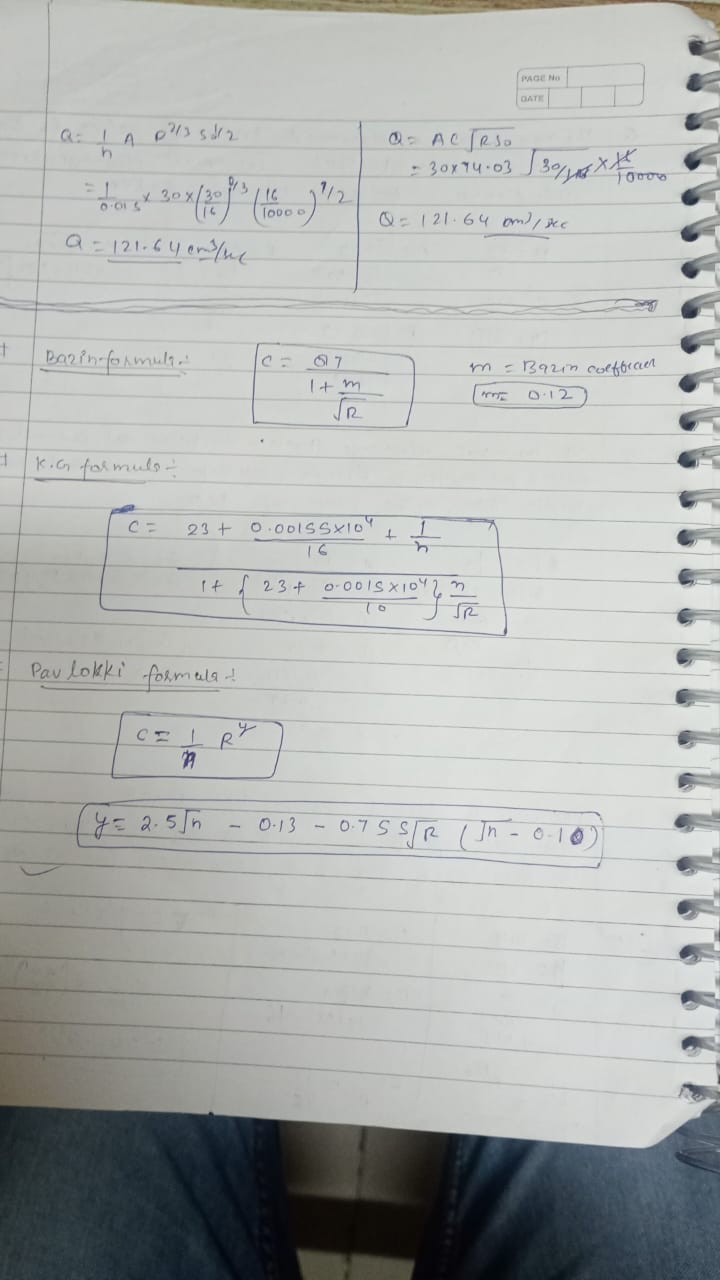 PAGE No
DATE
Q = 1/n A R^2/3 S^1/2
= 1/0.015 × 30 × (30/16)^2/3 (16/10000)^1/2
Q = 121.64 cm³/sec
Q = AC √RS₀
= 30×74.03 √30/16 × 16/10000
Q = 121.64 cm³/sec
Bazin formula :-
C = 87 / 1 + m/√R
m = Bazin coefficien
m = 0.12
K.G formula ÷
C = 23 + 0.00155×10⁴/16 + 1/n
1 + { 23 + 0.0015×10⁴/10 } n/√R
Pavlokki formula :-
C = 1/n R^y
y = 2.5√n - 0.13 - 0.75 5√R (√n - 0.10)